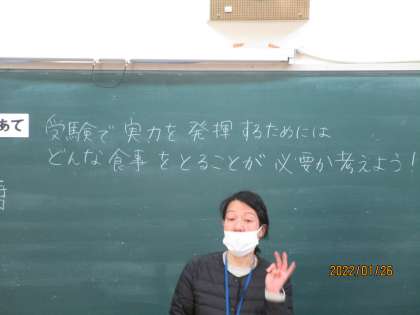 あて
受験で実力を発揮するためには
どんな食事をとることが必要か考えよう!
2022/01/26